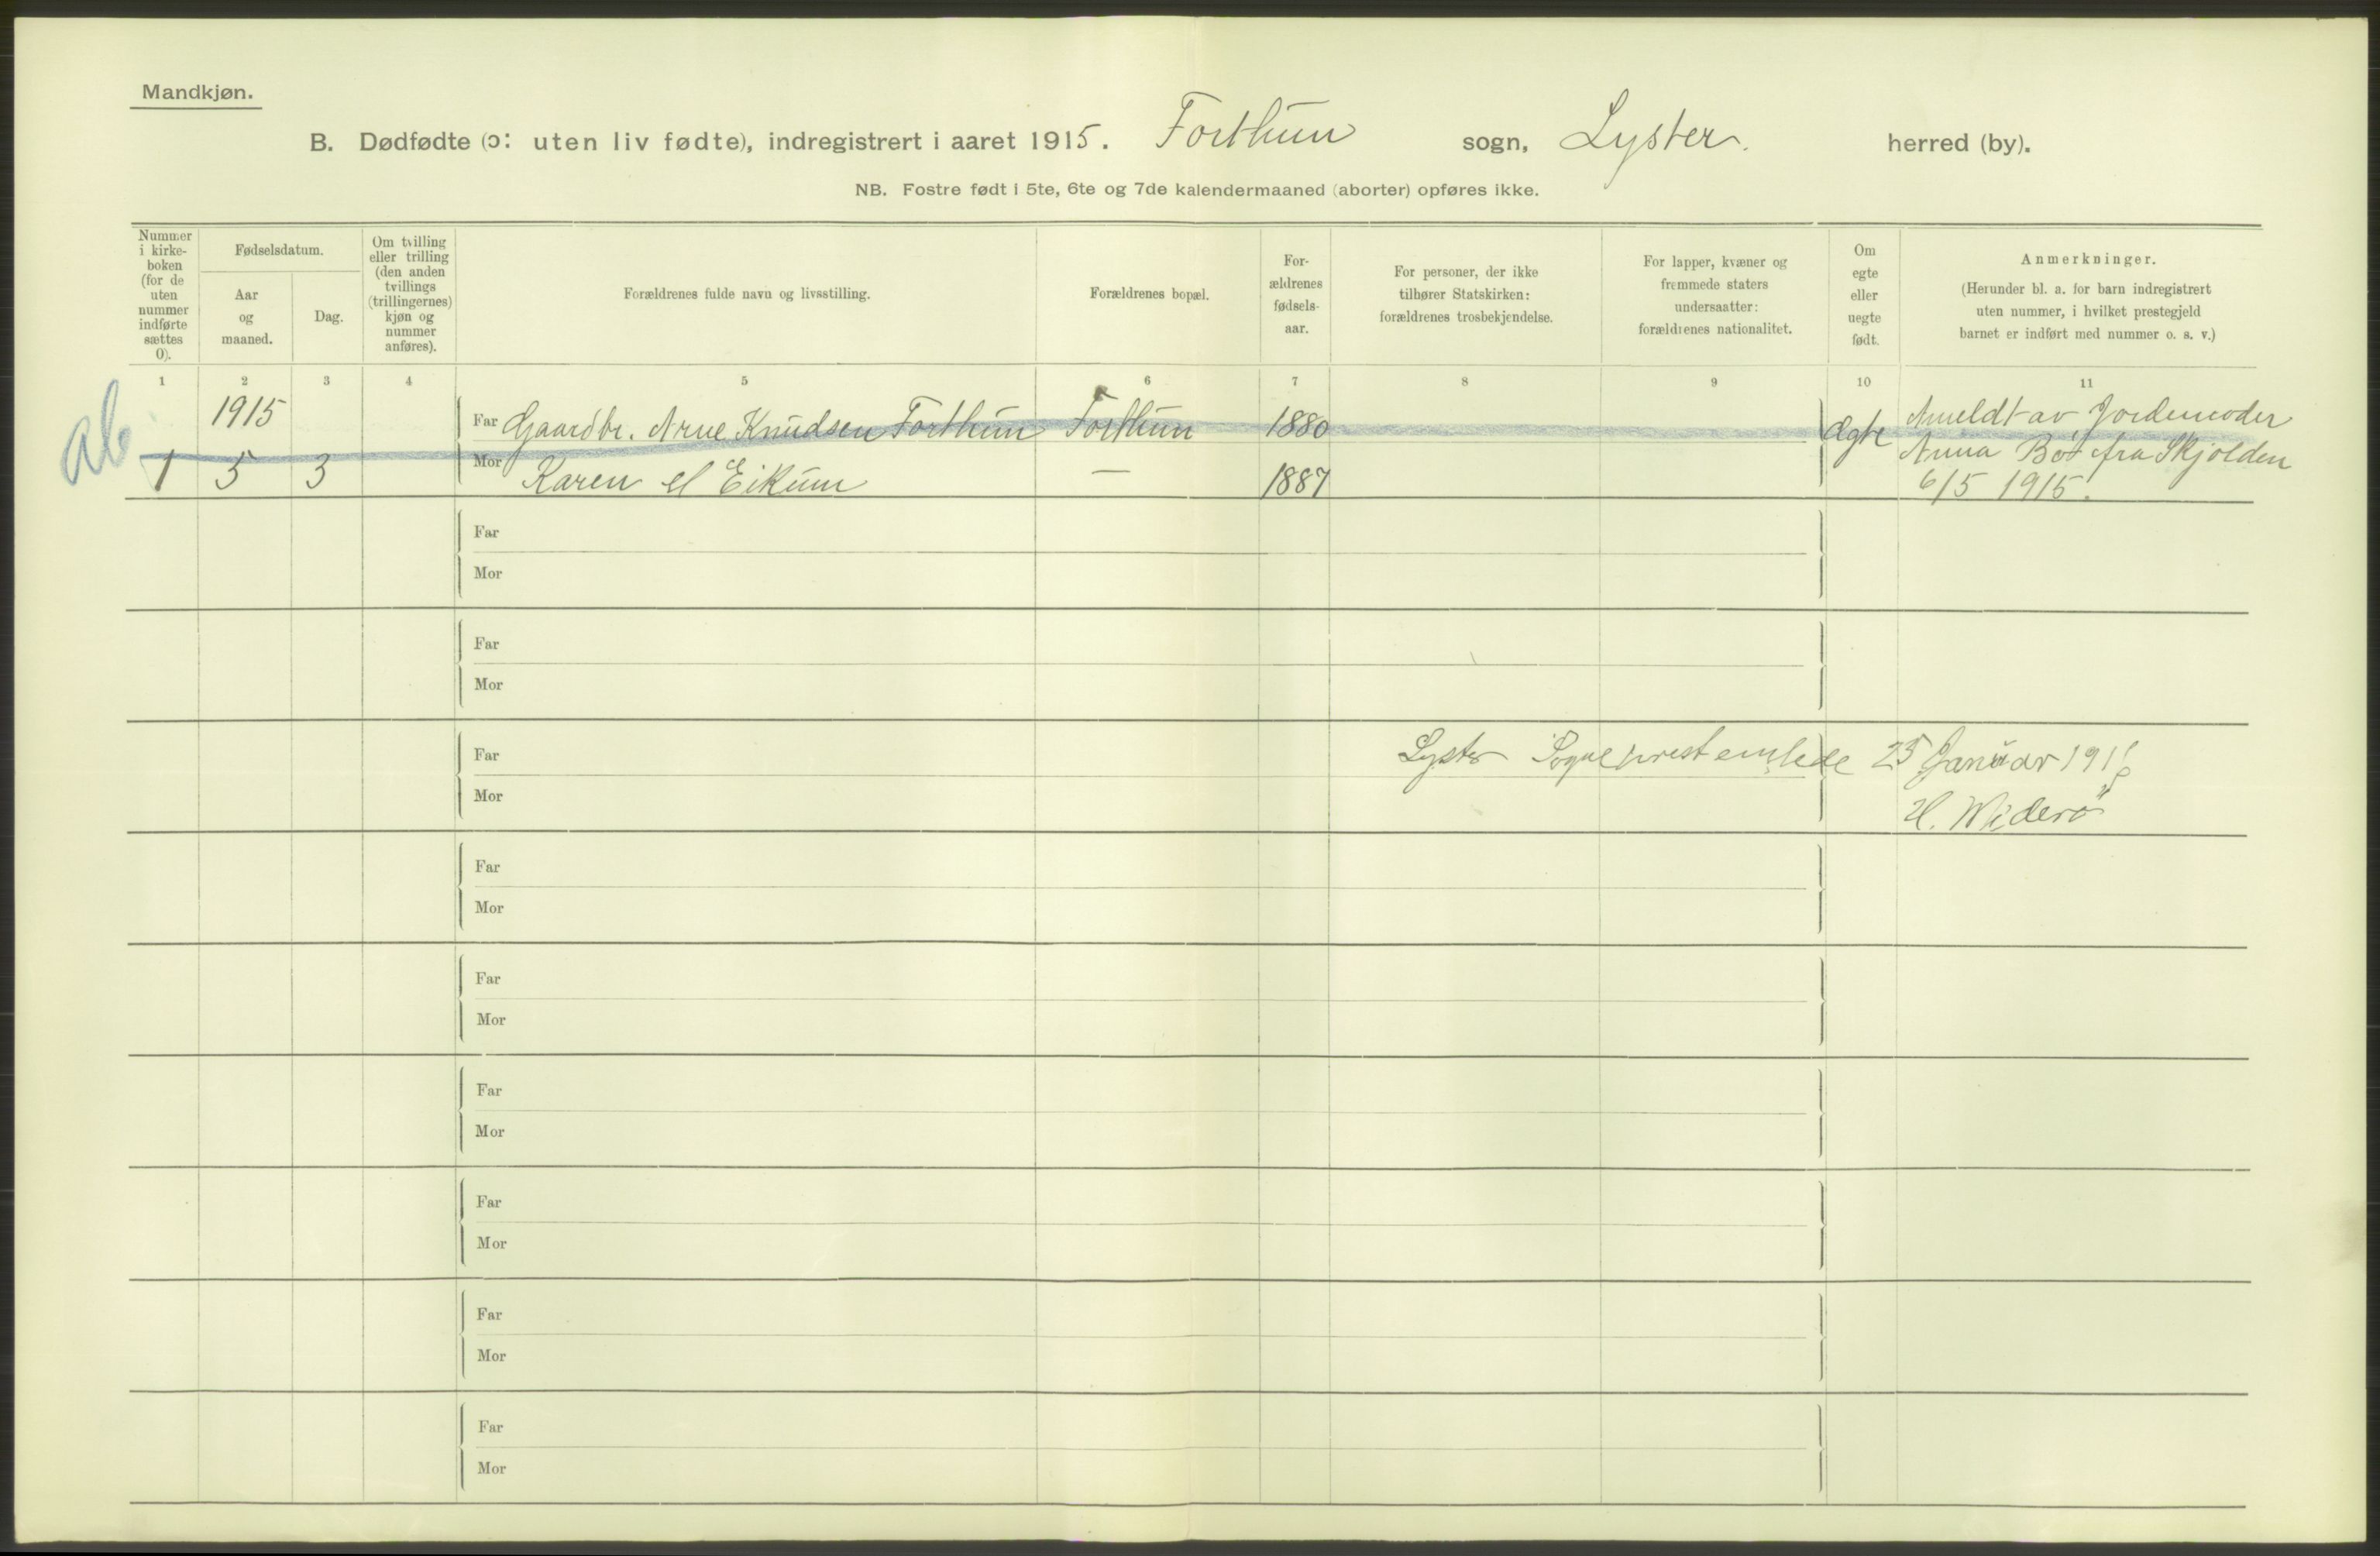 Mandkjøn.
B. Dødfødte (ɔ: uten liv fødte), indregistrert i aaret 1915. Forthun sogn, Lyster. herred (by).
NB. Fostre født i 5te, 6te og 7de kalendermaaned (aborter) opføres ikke.
Nummer
i kirke-
boken
(for de
uten
nummer
indførte
sættes
0).
Fødselsdatum.
Aar
og
maaned.
Dag.
Om tvilling
eller trilling
(den anden
tvillings
(trillingernes)
kjøn og
nummer
anføres).
Forældrenes fulde navn og livsstilling.
Forældrenes bopæl.
For-
ældrenes
fødsels-
aar.
For personer, der ikke
tilhører Statskirken:
forældrenes trosbekjendelse.
For lapper, kvæner og
fremmede staters
undersaatter:
forældrenes nationalitet.
Om
egte
eller
uegte
født.
Anmerkninger.
(Herunder bl. a. for barn indregistrert
uten nummer, i hvilket prestegjeld
barnet er indført med nummer o. s. v.)
1 2 3 4 5 6 7 8 9 10 11
ab
1915
Far Gaardbr. Arne Knudsen Forthun Forthun 1880
1 5 3 Mor Karen Eikum — 1887
Ægte
Anmeldt av Jordemoder
Anna Bø fra Skjolden
6/5 1915.
Far
Mor
Far
Mor
Far
Lyster Sogneprestembede 25 Januar 1916
Mor
H. Widerö
Far
Mor
Far
Mor
Far
Mor
Far
Mor
Far
Mor
Far
Mor